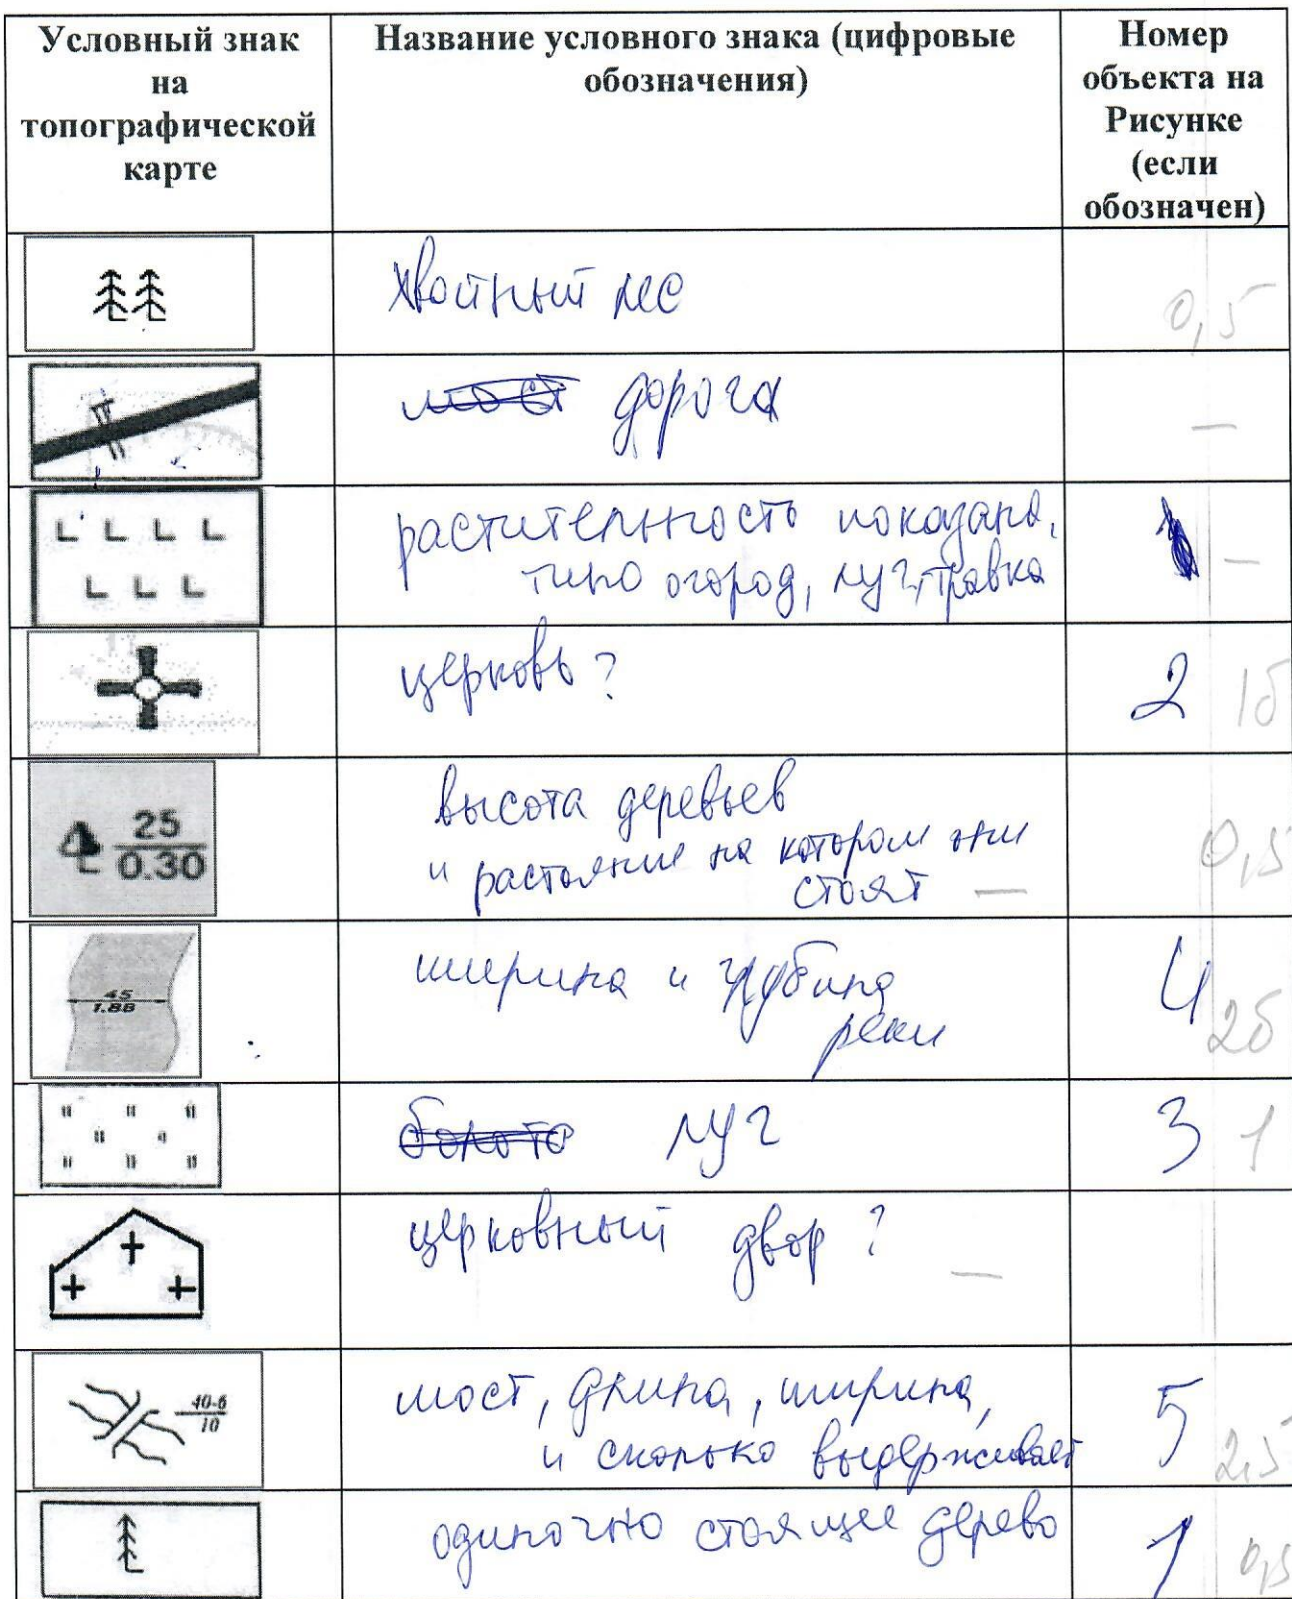 Условный знак
на
топографической
карте
Название условного знака (цифровые
обозначения)
Номер
объекта на
Рисунке
(если
обозначен)
хвойный лес
0,5
мост дорога
—
растительность показана,
типо огород, луг, травка
—
церковь?
2 1б
25
0.30
высота деревьев
и растояние на котором они
стоят —
0,5
45
1.8В
ширина и глубина
реки
4 2б
болото луг
3 1
церковный двор? —
40-6
10
мост, длина, ширина,
и сколько выдерживает
5 2,5
одиночно стоящее дерево
1 0,5